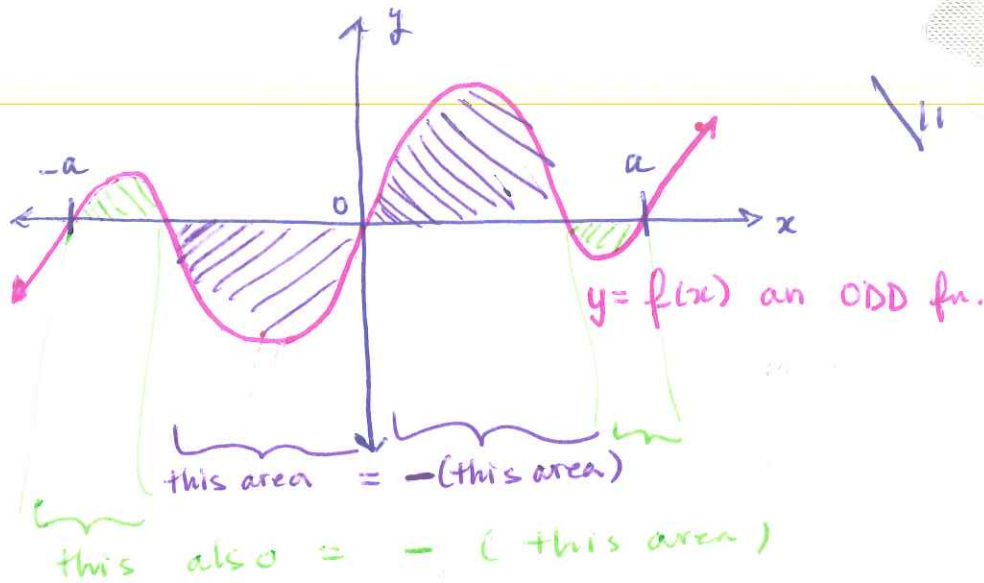 y
11
-a
a
0
x
y = f(x) an ODD fn.
this area = -(this area)
this also = - (this area)